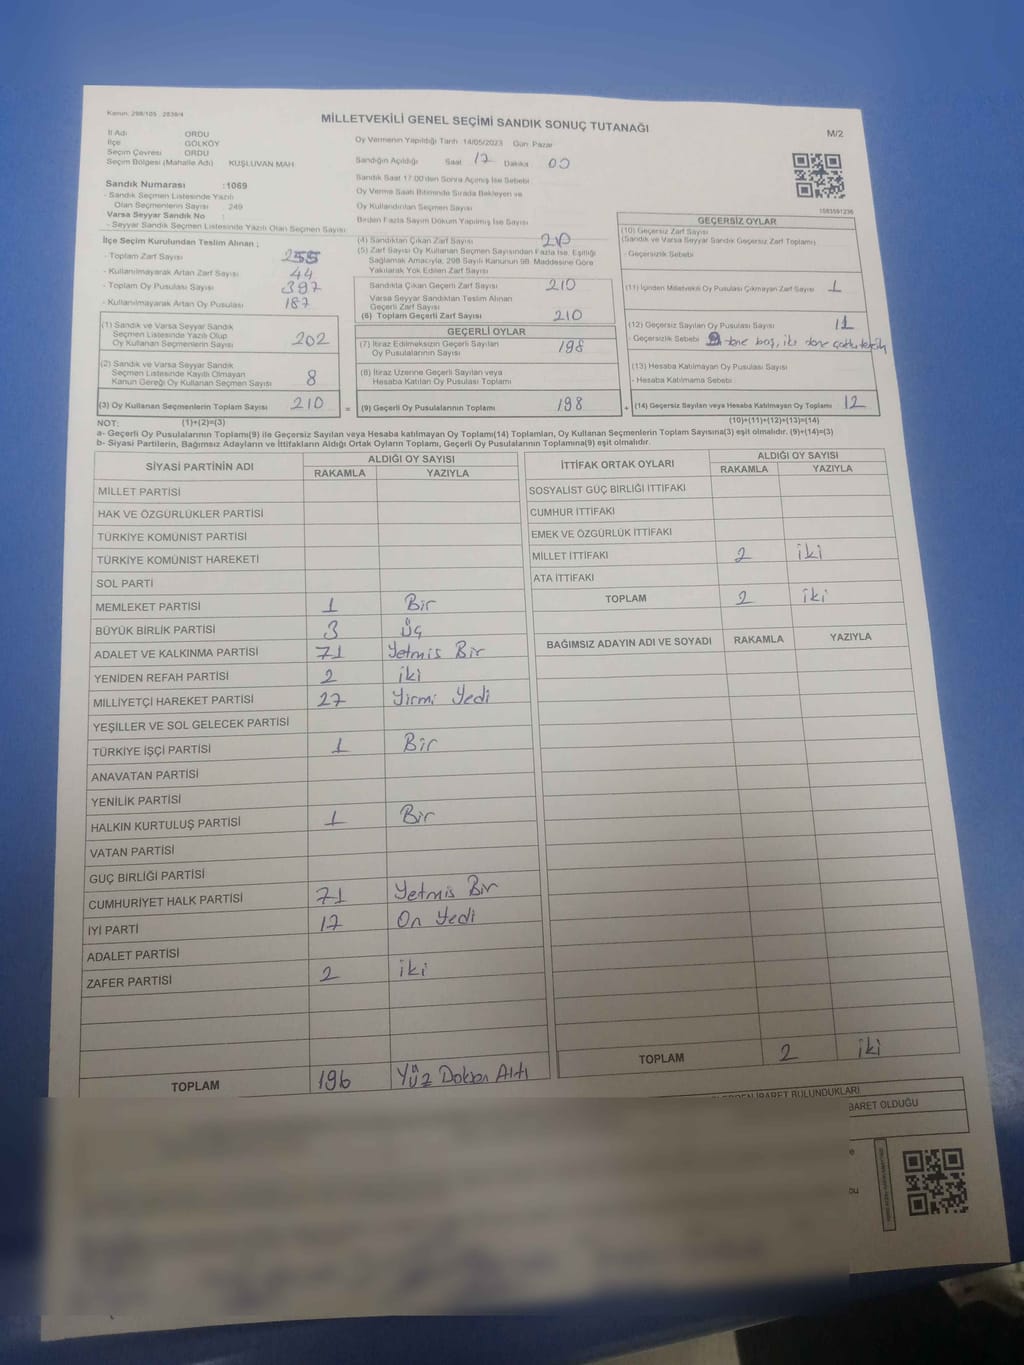 Kanun: 298/105 2839/4
MİLLETVEKİLİ GENEL SEÇİMİ SANDIK SONUÇ TUTANAĞI
M/2
İl Adı ORDU
İlçe GÖLKÖY
Seçim Çevresi ORDU
Seçim Bölgesi (Mahalle Adı) KUŞLUVAN MAH
Sandık Numarası :1069
- Sandık Seçmen Listesinde Yazılı
Olan Seçmenlerin Sayısı 249
Varsa Seyyar Sandık No :
- Seyyar Sandık Seçmen Listesinde Yazılı Olan Seçmen Sayısı:
Oy Vermenin Yapıldığı Tarih 14/05/2023 Gün: Pazar
Sandığın Açıldığı Saat 17 Dakika 00
Sandık Saat 17:00'den Sonra Açılmış İse Sebebi
Oy Verme Saati Bitiminde Sırada Bekleyen ve
Oy Kullandırılan Seçmen Sayısı
Birden Fazla Sayım Döküm Yapılmış İse Sayısı
1583591236
İlçe Seçim Kurulundan Teslim Alınan ;
- Toplam Zarf Sayısı 255
- Kullanılmayarak Artan Zarf Sayısı 44
- Toplam Oy Pusulası Sayısı 397
- Kullanılmayarak Artan Oy Pusulası 187
(1) Sandık ve Varsa Seyyar Sandık
Seçmen Listesinde Yazılı Olup
Oy Kullanan Seçmenlerin Sayısı 202
(2) Sandık ve Varsa Seyyar Sandık
Seçmen Listesinde Kayıtlı Olmayan
Kanun Gereği Oy Kullanan Seçmen Sayısı 8
(3) Oy Kullanan Seçmenlerin Toplam Sayısı 210 =
(4) Sandıktan Çıkan Zarf Sayısı 210
(5) Zarf Sayısı Oy Kullanan Seçmen Sayısından Fazla İse, Eşitliği
Sağlamak Amacıyla, 298 Sayılı Kanunun 98. Maddesine Göre
Yakılarak Yok Edilen Zarf Sayısı
Sandıkta Çıkan Geçerli Zarf Sayısı 210
Varsa Seyyar Sandıktan Teslim Alınan
Geçerli Zarf Sayısı
(6) Toplam Geçerli Zarf Sayısı 210
GEÇERLİ OYLAR
(7) İtiraz Edilmeksizin Geçerli Sayılan
Oy Pusulalarının Sayısı 198
(8) İtiraz Üzerine Geçerli Sayılan veya
Hesaba Katılan Oy Pusulası Toplamı
(9) Geçerli Oy Pusulalarının Toplamı 198 +
GEÇERSİZ OYLAR
(10) Geçersiz Zarf Sayısı
(Sandık ve Varsa Seyyar Sandık Geçersiz Zarf Toplamı)
- Geçersizlik Sebebi
(11) İçinden Milletvekili Oy Pusulası Çıkmayan Zarf Sayısı 1
(12) Geçersiz Sayılan Oy Pusulası Sayısı 11
- Geçersizlik Sebebi tane boş, iki tane
(13) Hesaba Katılmayan Oy Pusulası Sayısı
- Hesaba Katılmama Sebebi
(14) Geçersiz Sayılan veya Hesaba Katılmayan Oy Toplamı 12
NOT: (1)+(2)=(3) (10)+(11)+(12)+(13)=(14)
a- Geçerli Oy Pusulalarının Toplamı(9) ile Geçersiz Sayılan veya Hesaba katılmayan Oy Toplamı(14) Toplamları, Oy Kullanan Seçmenlerin Toplam Sayısına(3) eşit olmalıdır. (9)+(14)=(3)
b- Siyasi Partilerin, Bağımsız Adayların ve İttifakların Aldığı Ortak Oyların Toplamı, Geçerli Oy Pusulalarının Toplamına(9) eşit olmalıdır.
SİYASİ PARTİNİN ADI ALDIĞI OY SAYISI
RAKAMLA YAZIYLA
MİLLET PARTİSİ
HAK VE ÖZGÜRLÜKLER PARTİSİ
TÜRKİYE KOMÜNİST PARTİSİ
TÜRKİYE KOMÜNİST HAREKETİ
SOL PARTİ
MEMLEKET PARTİSİ 1 Bir
BÜYÜK BİRLİK PARTİSİ 3 Üç
ADALET VE KALKINMA PARTİSİ 71 Yetmis Bir
YENİDEN REFAH PARTİSİ 2 iki
MİLLİYETÇİ HAREKET PARTİSİ 27 Yirmi Yedi
YEŞİLLER VE SOL GELECEK PARTİSİ
TÜRKİYE İŞÇİ PARTİSİ 1 Bir
ANAVATAN PARTİSİ
YENİLİK PARTİSİ
HALKIN KURTULUŞ PARTİSİ 1 Bir
VATAN PARTİSİ
GÜÇ BİRLİĞİ PARTİSİ
CUMHURİYET HALK PARTİSİ 71 Yetmis Bir
İYİ PARTİ 17 On Yedi
ADALET PARTİSİ
ZAFER PARTİSİ 2 iki
TOPLAM 196 Yüz Doksan Altı
İTTİFAK ORTAK OYLARI ALDIĞI OY SAYISI
RAKAMLA YAZIYLA
SOSYALİST GÜÇ BİRLİĞİ İTTİFAKI
CUMHUR İTTİFAKI
EMEK VE ÖZGÜRLÜK İTTİFAKI
MİLLET İTTİFAKI 2 iki
ATA İTTİFAKI
TOPLAM 2 iki
BAĞIMSIZ ADAYIN ADI VE SOYADI RAKAMLA YAZIYLA
TOPLAM 2 iki
İBARET BULUNDUKLARI
BARET OLDUĞU